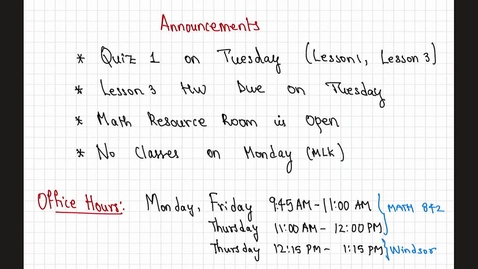 Announcements
* Quiz 1 on Tuesday (Lesson 1, Lesson 3)
* Lesson 3 HW Due on Tuesday
* Math Resource Room is Open
* No Classes on Monday (MLK)
Office Hours: Monday, Friday 9:45 AM - 11:00 AM
Thursday 11:00 AM - 12:00 PM } MATH 842
Thursday 12:15 PM - 1:15 PM } Windsor